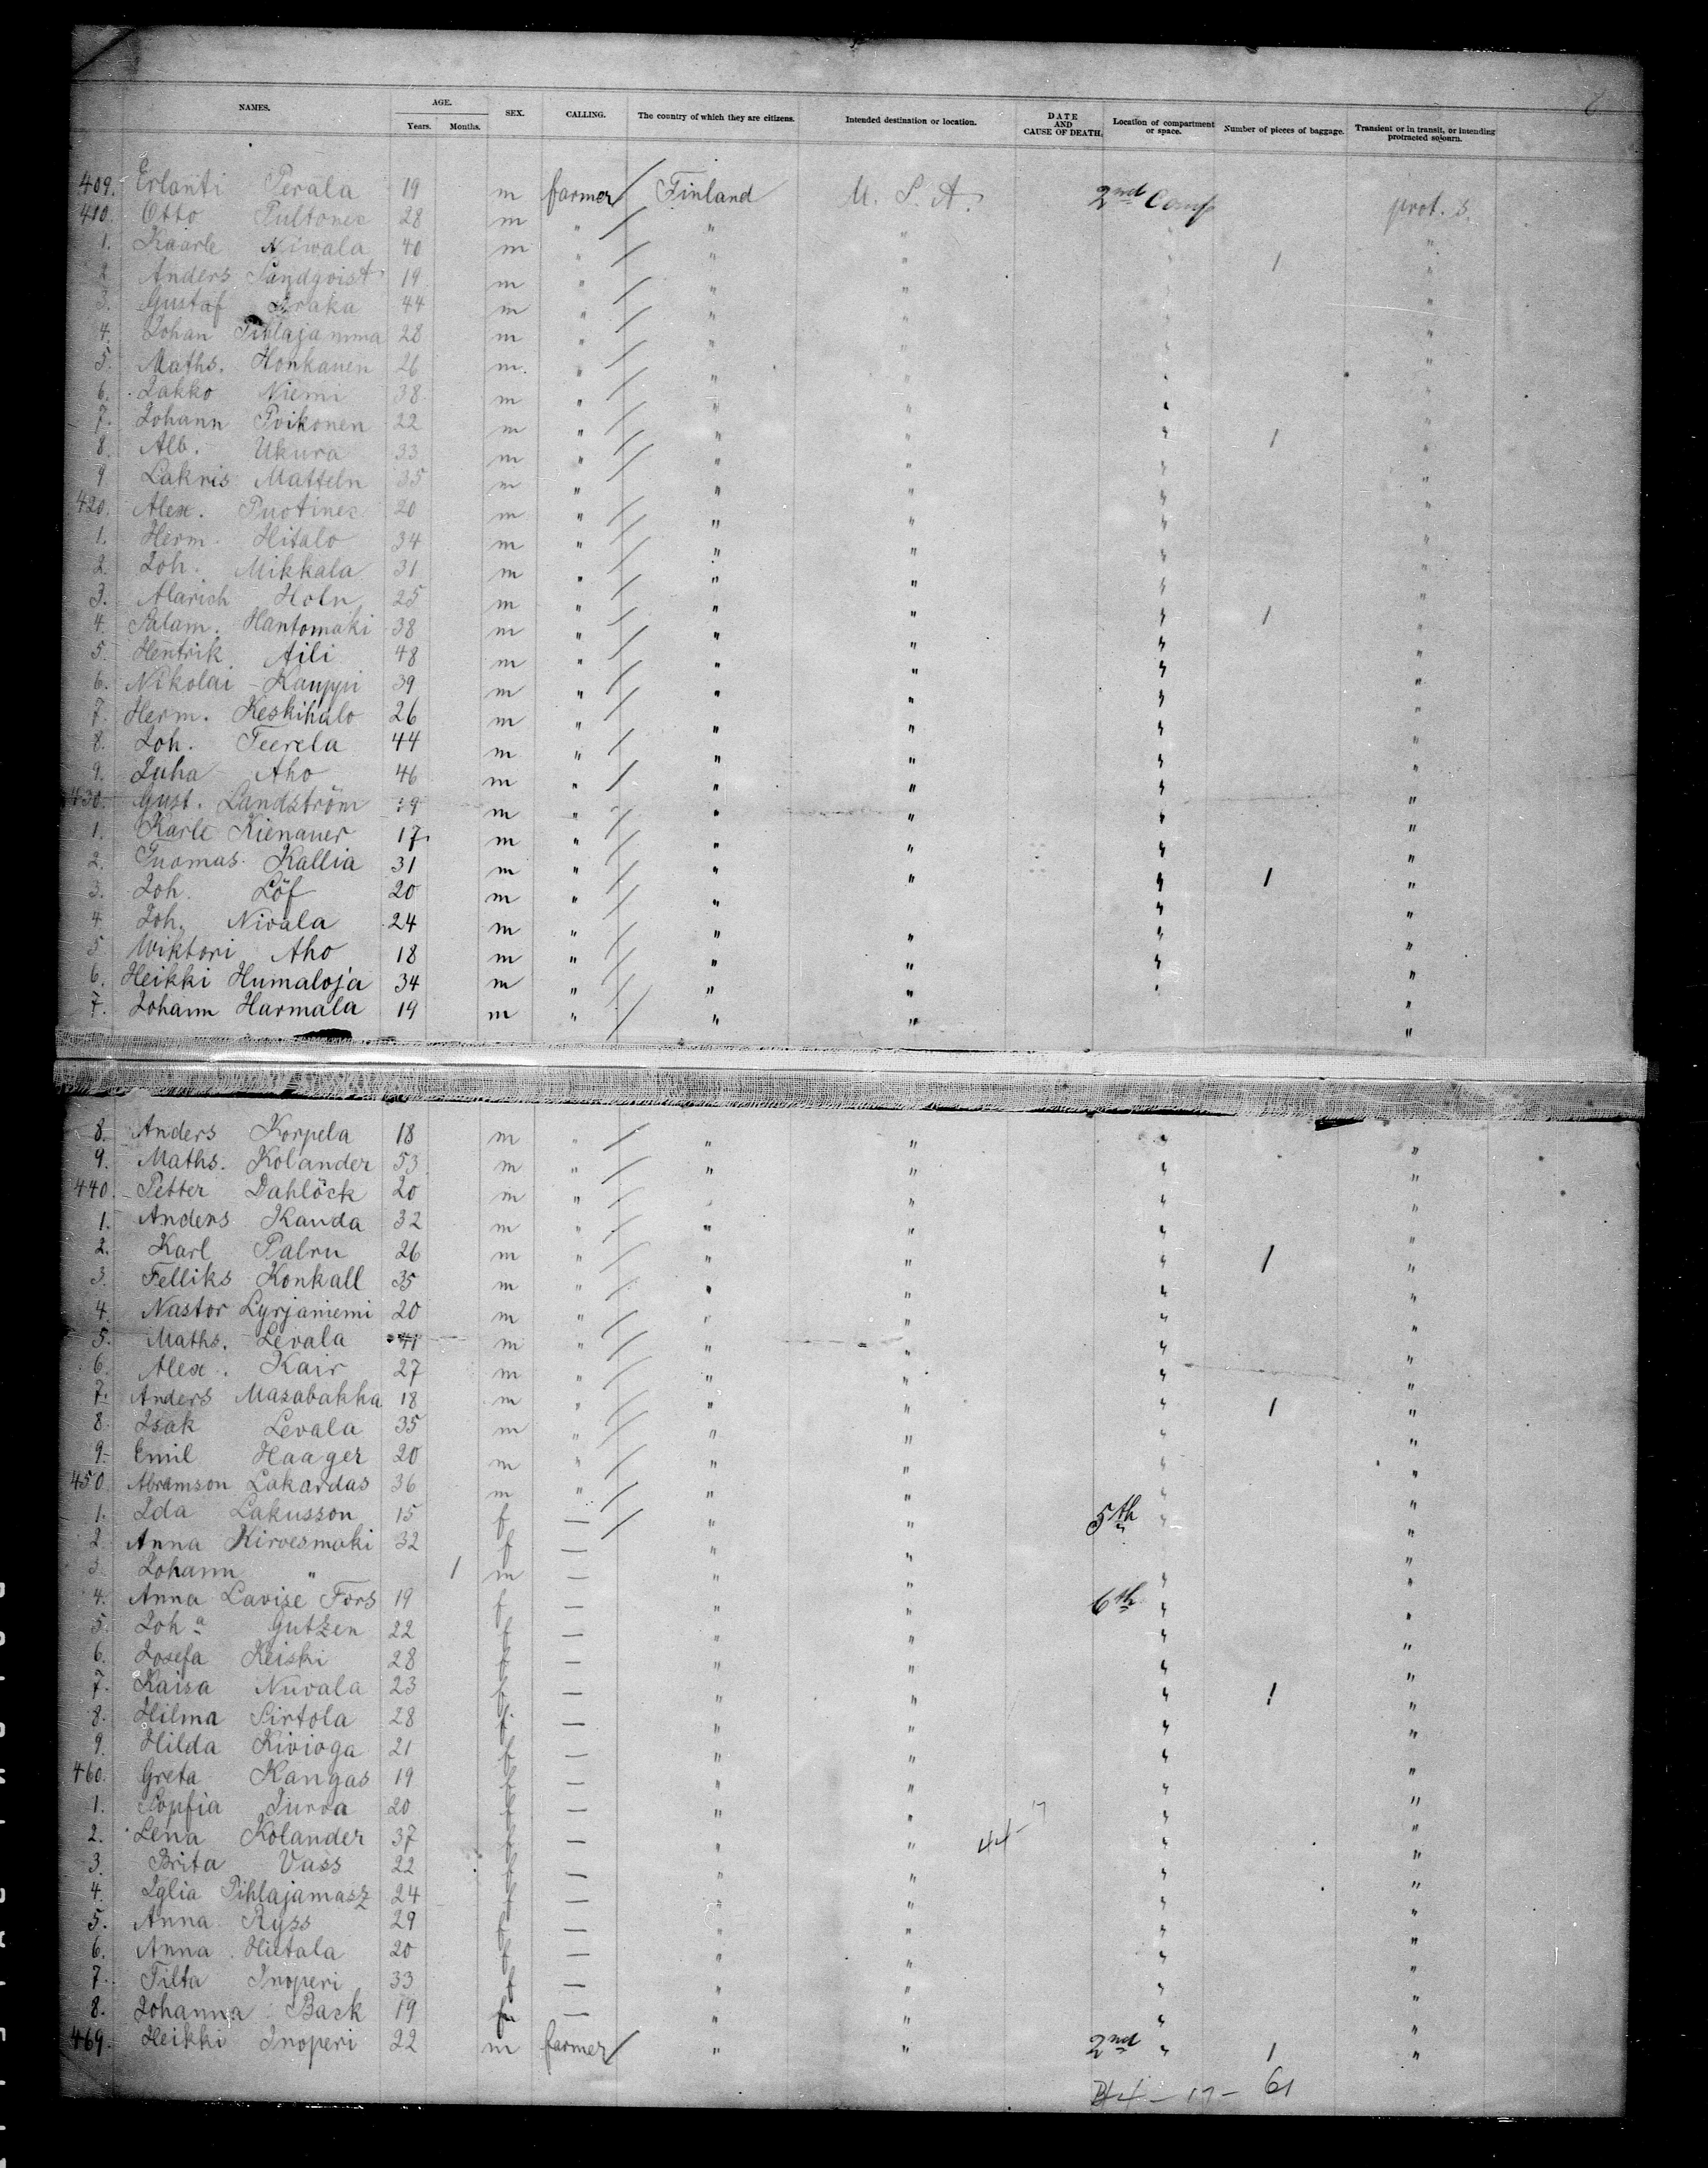 NAMES. AGE. Years. Months. SEX. CALLING. The country of which they are citizens. Intended destination or location. DATE AND CAUSE OF DEATH. Location of compartment or space. Number of pieces of baggage. Transient or in transit, or intending protracted sojourn.
409. Erlanti Perala 19 m farmer / Finland U. S. A. 2nd Comp prot. s.
410. Otto Pultonec 28 m " / " " " "
1. Kaarle Niwala 40 m " / " " " 1 "
2 Anders Sandqvist 19 m " / " " " "
3. Gustaf 44 m " / " " " "
4. Johan Pihlajamma 28 m " / " " " "
5. Maths. Honkanen 26 m. " / " " " "
6. Jakko Niemi 38 m " / " " " "
7. Johann Poikonen 22 m " / " " " 1 "
8. Alb. Ukura 33 m " / " " " "
9 Lakris Matteln 35 m " / " " " "
420. Alex. Puotinec 20 m " / " " " "
1. Herm. Hitalo 34 m " / " " " "
2. Joh. Mikkala 31 m " / " " " "
3. Alarich Holn 25 m " / " " " 1 "
4. Salam. Hantomaki 38 m " / " " " "
5. Hentrik Aili 48 m " / " " " "
6. Nikolai Kauppi 39 m " / " " " "
7. Herm. Keskihalo 26 m " / " " " "
8. Joh. Teerela 44 m " / " " " "
9. Juha Aho 46 m " / " " " "
430. Gust. Landström 39 m " / " " " "
1. Karle Kienauer 17 m " / " " " "
2. Tuomas Kallia 31 m " / " " " 1 "
3. Joh. Löf 20 m " / " " "
4. Joh. Nivala 24 m " / " " " "
5 Wiktori Aho 18 m " / " " " "
6. Heikki Humaloja 34 m " / " " " "
7. Johann Harmala 19 m " / " " "
8. Anders Korpela 18 m " / " " " "
9. Maths. Kolander 53 m " / " " " "
440. Petter Dahlöck 20 m " / " " " "
1. Anders Kauda 32 m " / " " " "
2. Karl Palru 26 m " / " " " 1 "
3. Felliks Konkall 35 m " / " " " "
4. Nastor Lyrjaniemi 20 m " / " " " "
5. Maths. Levala 41 m " / " " " "
6. Alex. Kair 27 m " / " " " "
7. Anders Masabakka 18 m " / " " " 1 "
8. Isak Levala 35 m " / " " " "
9. Emil Haager 20 m " / " " " "
450 Abramson Lakardas 36 m " / " " " "
1. Ida Lakusson 15 f — / " " 5th " "
2. Anna Kirvesmaki 32 f — " " "
3. Johann " 1 m — " " " "
4. Anna Lavise Fors 19 f — " " 6th " "
5. Joha Gutzen 22 f — " " " "
6. Josefa Keiski 28 f — " " " "
7. Kaisa Nuvala 23 f — " " " 1 "
8. Hilma Sirtola 28 f — " " " "
9. Hilda Kivioga 21 f — " " " "
460. Greta Kangas 19 f — " " " "
1. Sopfia Jurva 20 f — " " " "
2. Lena Kolander 37 f — " " 44 - 17 " "
3. Brita Vass 22 f — " " " "
4. Iglia Pihlajamasz 24 f — " " " "
5. Anna Ryss 29 f — " " " "
6. Anna Hietala 20 f — " " " "
7. Tilta Inoperi 33 f — " " " "
8. Johanna Back 19 f — " " " "
469. Heikki Inoperi 22 m farmer / " " 2nd " 1 "
17 - 61